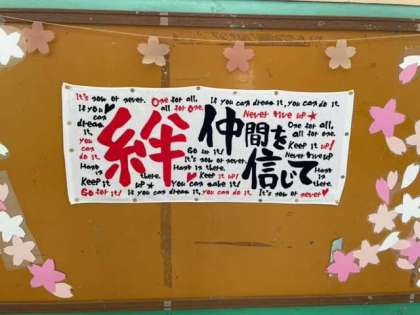 It's now or never. One for all, all for one. If you can dream it, you can do it.
Never give up★
If you can dream it, you can do it.
絆
仲間を
信じて
One for all, all for one.
Keep it up!
Go for it!
It's now or never.
Never give up
Keep it up!
Keep it up★
there.
You can make it!
Go for it! If you can dream it, you can do it. It's now or never♥